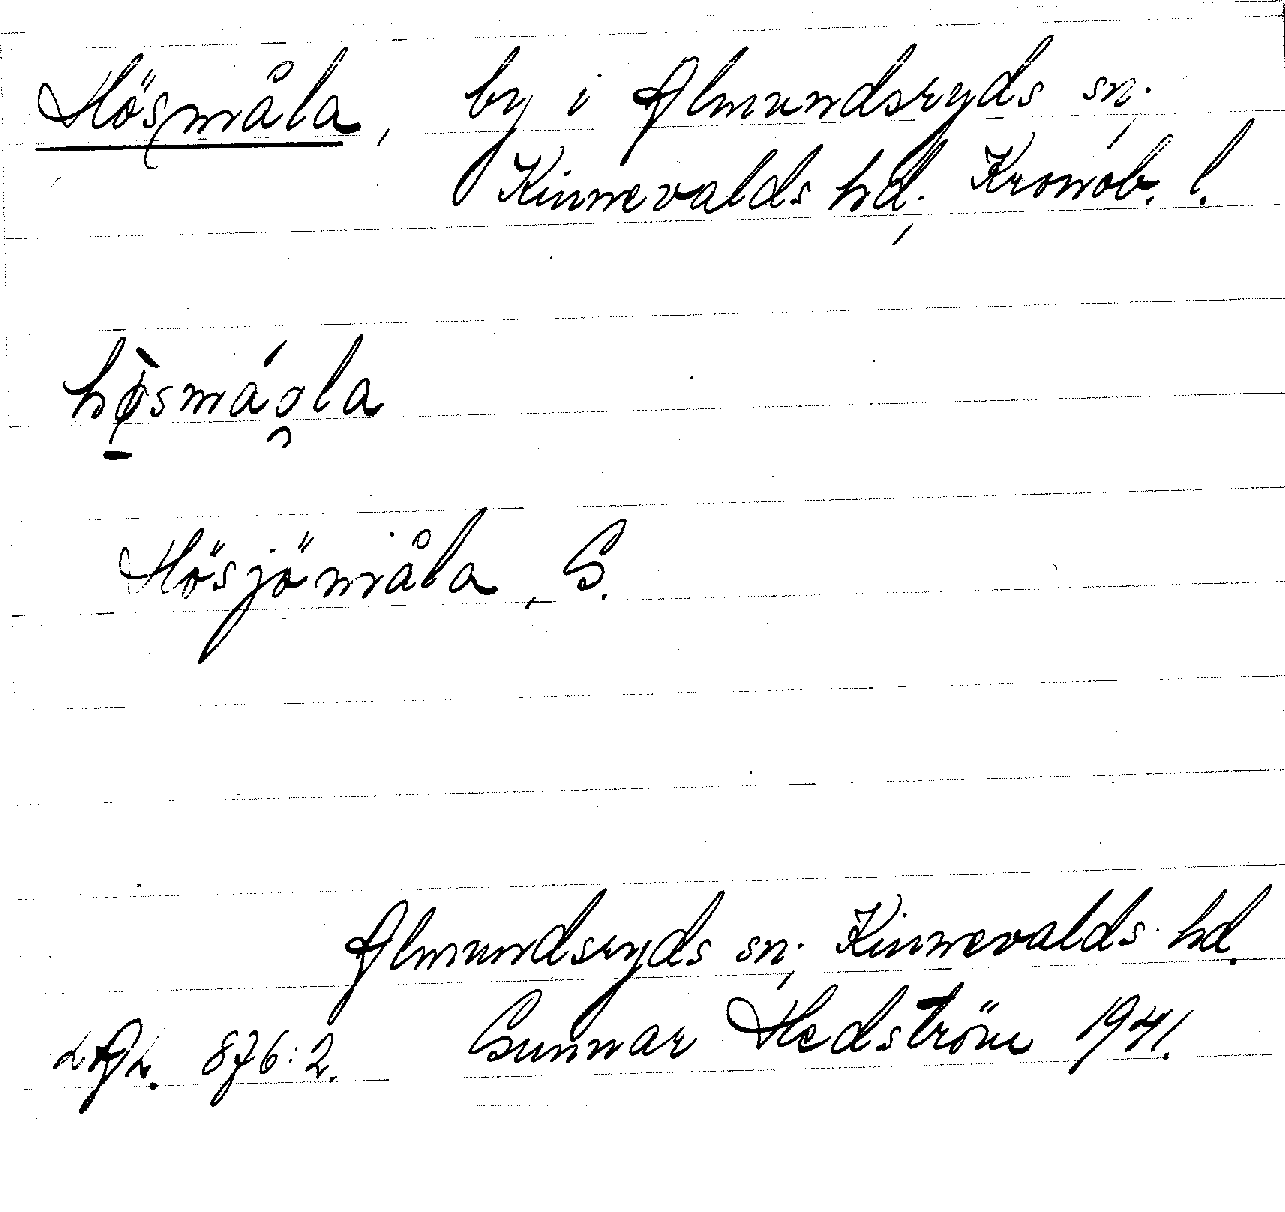 Hösmåla, by i Almundsryds sn;
Kinnevalds hd; Kronob. l.
hø̱̀smáo̯la
Hösjömåla, S.
Almundsryds sn; Kinnevalds hd.
876:2. Gunnar Hedström 1941.